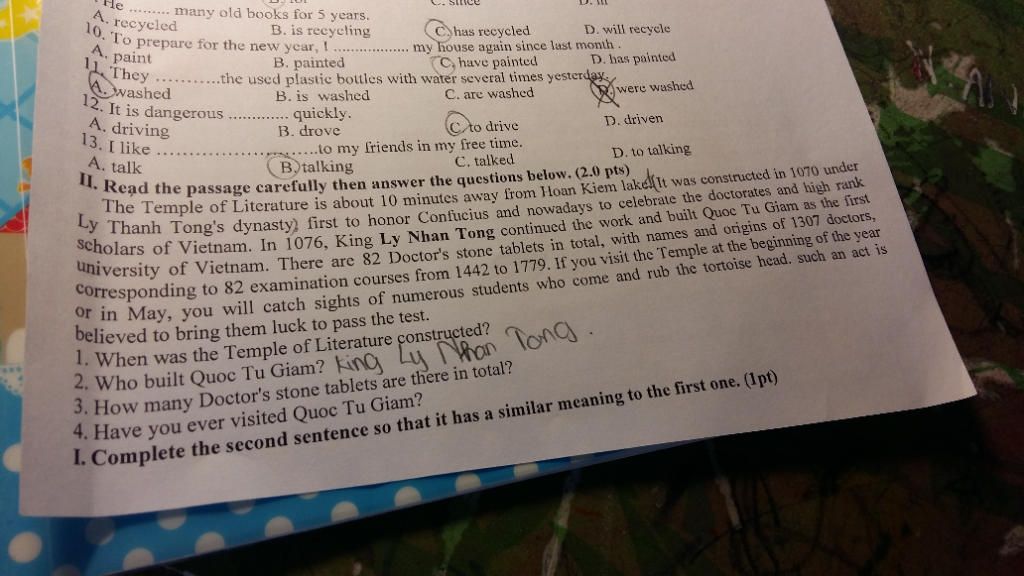 He ......... many old books for 5 years.
A. recycled B. is recycling C. has recycled D. will recycle
10. To prepare for the new year, I .................. my house again since last month .
A. paint B. painted C. have painted D. has painted
11. They ...............the used plastic bottles with water several times yesterday.
A. washed B. is washed C. are washed D. were washed
12. It is dangerous ............. quickly.
A. driving B. drove C. to drive D. driven
13. I like ................................to my friends in my free time.
A. talk B. talking C. talked D. to talking
II. Read the passage carefully then answer the questions below. (2.0 pts)
The Temple of Literature is about 10 minutes away from Hoan Kiem lake. It was constructed in 1070 under
Ly Thanh Tong's dynasty, first to honor Confucius and nowadays to celebrate the doctorates and high rank
scholars of Vietnam. In 1076, King Ly Nhan Tong continued the work and built Quoc Tu Giam as the first
university of Vietnam. There are 82 Doctor's stone tablets in total, with names and origins of 1307 doctors,
corresponding to 82 examination courses from 1442 to 1779. If you visit the Temple at the beginning of the year
or in May, you will catch sights of numerous students who come and rub the tortoise head. such an act is
believed to bring them luck to pass the test.
1. When was the Temple of Literature constructed?
2. Who built Quoc Tu Giam? King Ly Nhan Tong .
3. How many Doctor's stone tablets are there in total?
4. Have you ever visited Quoc Tu Giam?
I. Complete the second sentence so that it has a similar meaning to the first one. (1pt)